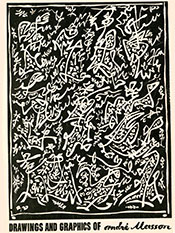 DRAWINGS AND GRAPHICS OF andré Masson